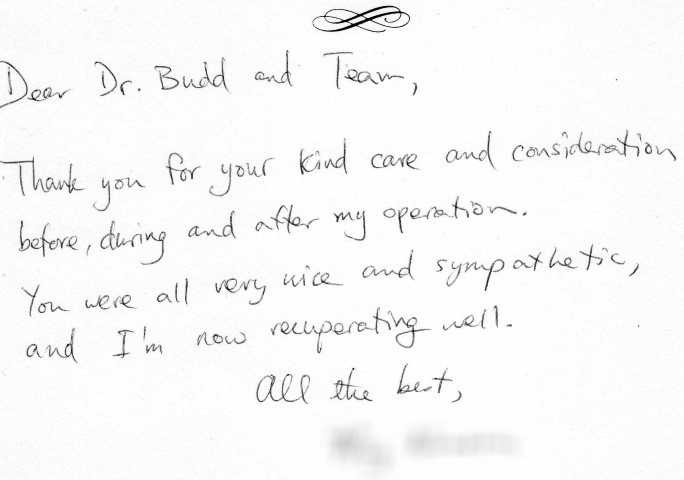 Dear Dr. Budd and Team,
Thank you for your kind care and consideration
before, during and after my operation.
You were all very nice and sympathetic,
and I'm now recuperating well.
All the best,